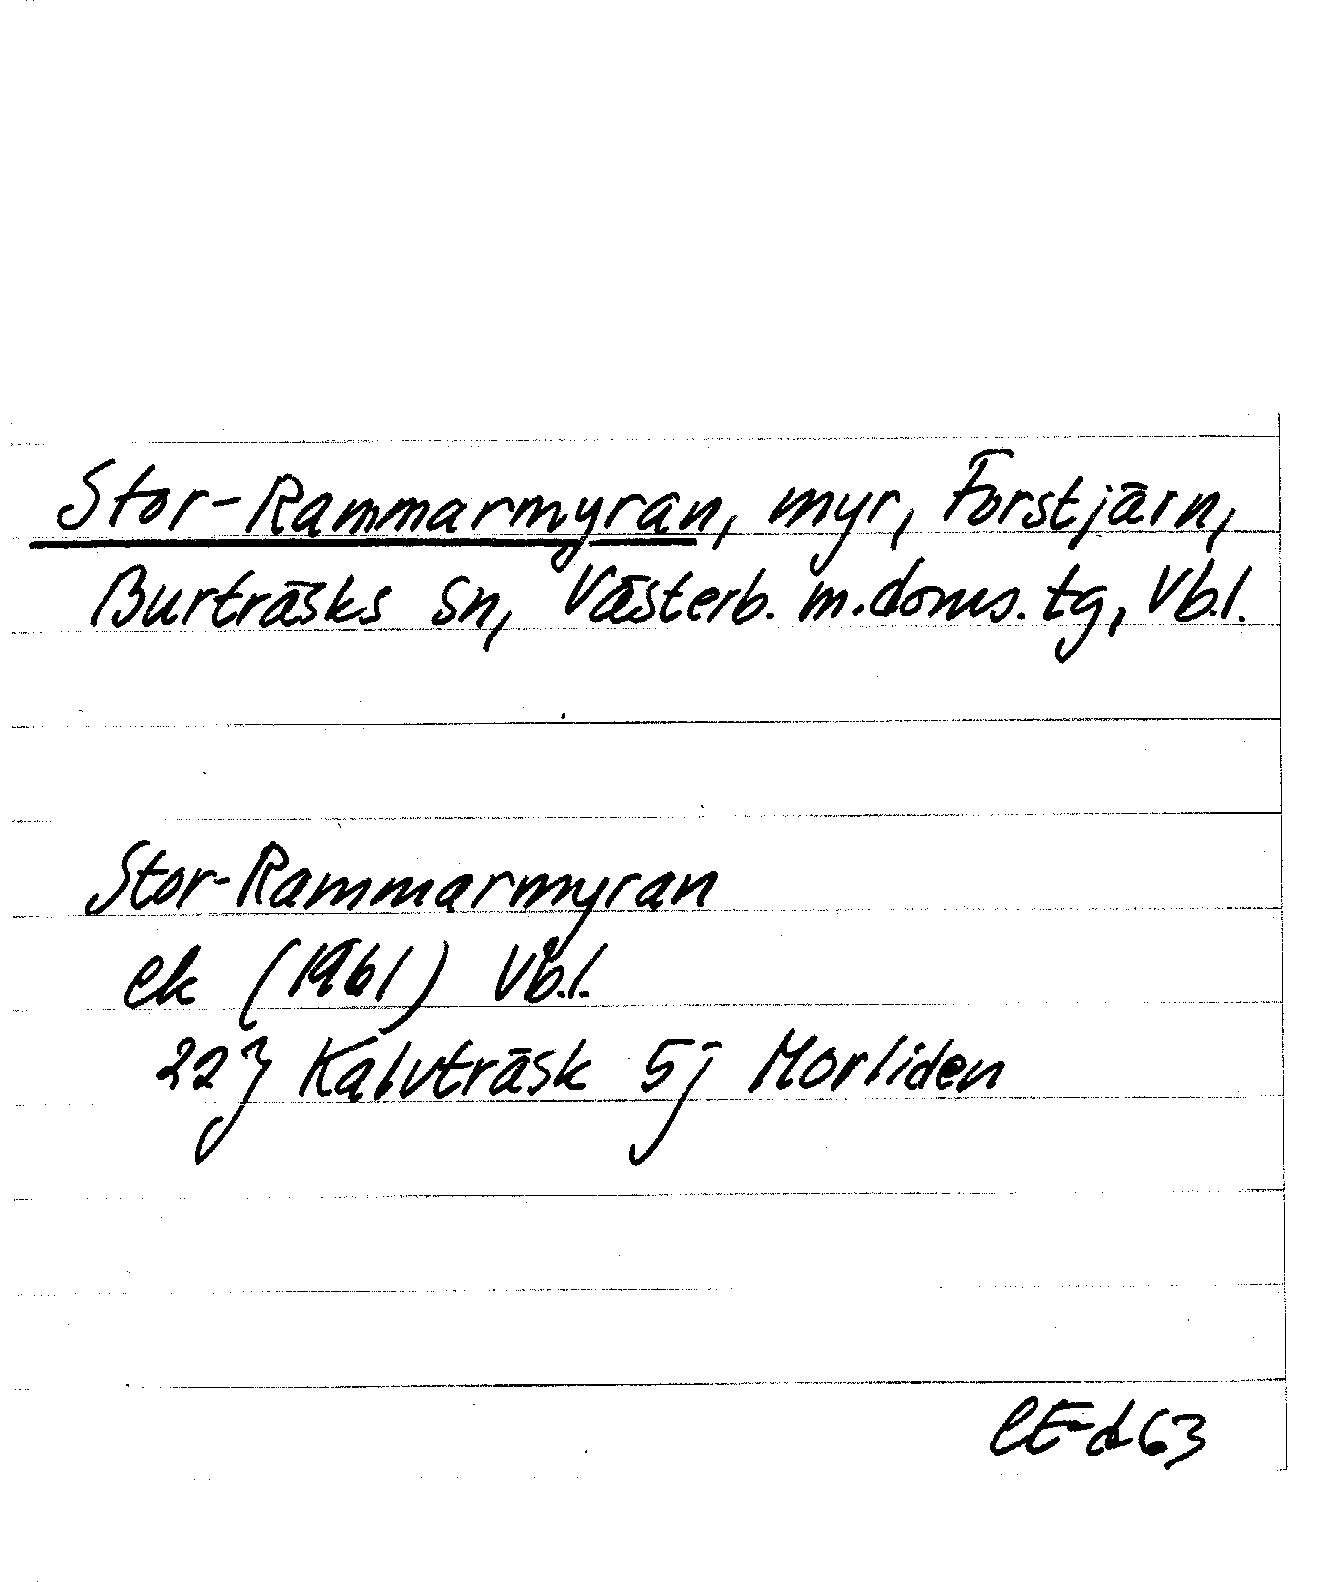 Stor-Rammarmyran, myr, Forstjärn,
Burträsks sn, Västerb. m. doms. tg, Vb.l.
Stor-Rammarmyran
ek (1961) Vb.l.
22J Kalvträsk 5j Morliden